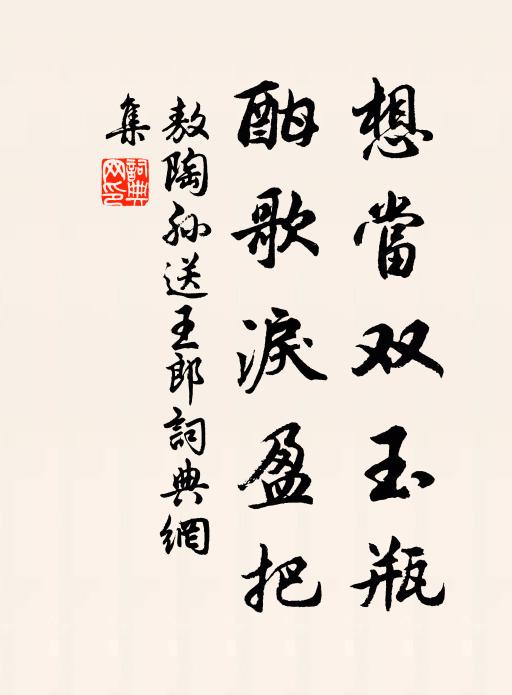 想當双玉瓶
酣歌淚盈把
敖陶孙送王郎詞典網
集
詞典網印